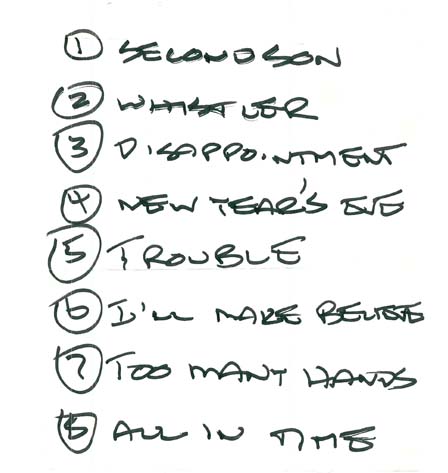 ① SECOND SON
② WHISTLER
③ DISAPPOINTMENT
④ NEW YEAR'S EVE
⑤ TROUBLE
⑥ I'LL MAKE BELIEVE
⑦ TOO MANY HANDS
⑧ ALL IN TIME